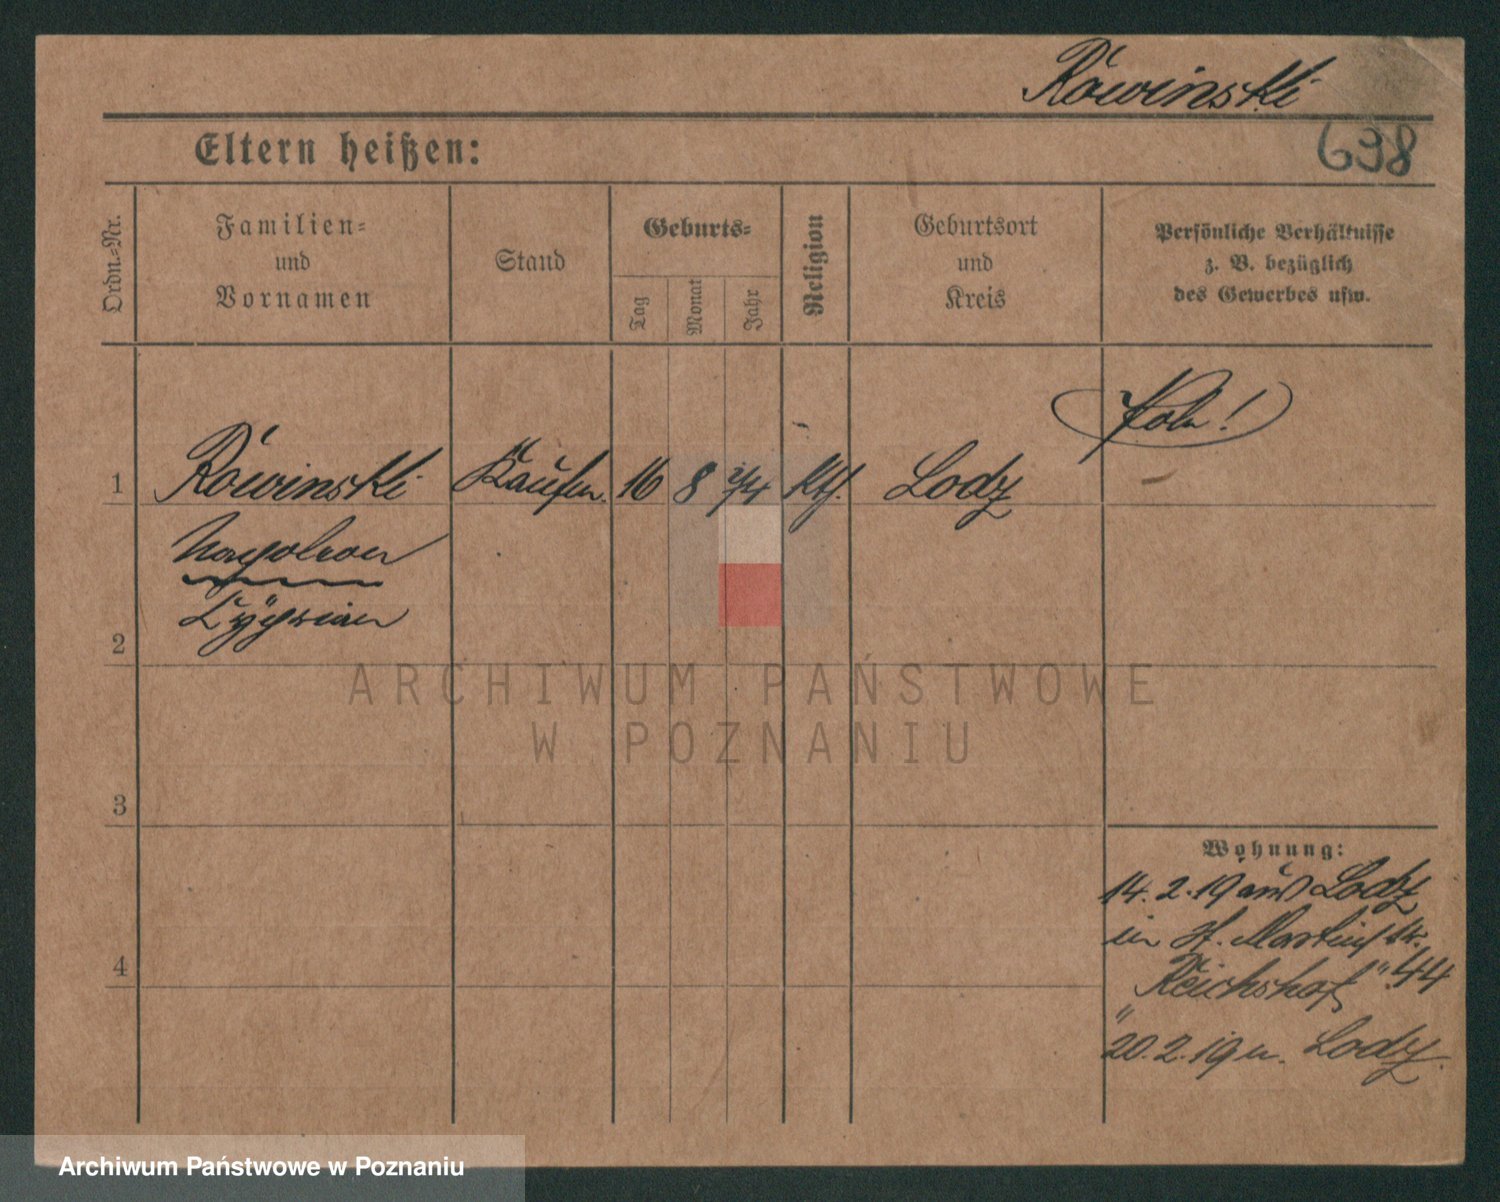 Rówinski
638
Eltern heißen:
Ordn.-Nr.
Familien-
und
Vornamen
Stand
Geburts-
Tag
Monat
Jahr
Religion
Geburtsort
und
Kreis
Persönliche Verhältnisse
z. B. bezüglich
des Gewerbes usw.
Pole!
1 Rówinski Kaufm. 16 8 74 Kth. Lodz
Napoleon
2 Cyprian
ARCHIWUM PAŃSTWOWE
W POZNANIU
3
Wohnung:
14.2.19 aus Lodz
in St. Martinstr.
4 "Reichshof" 44
20.2.19 n. Lodz.
Archiwum Państwowe w Poznaniu